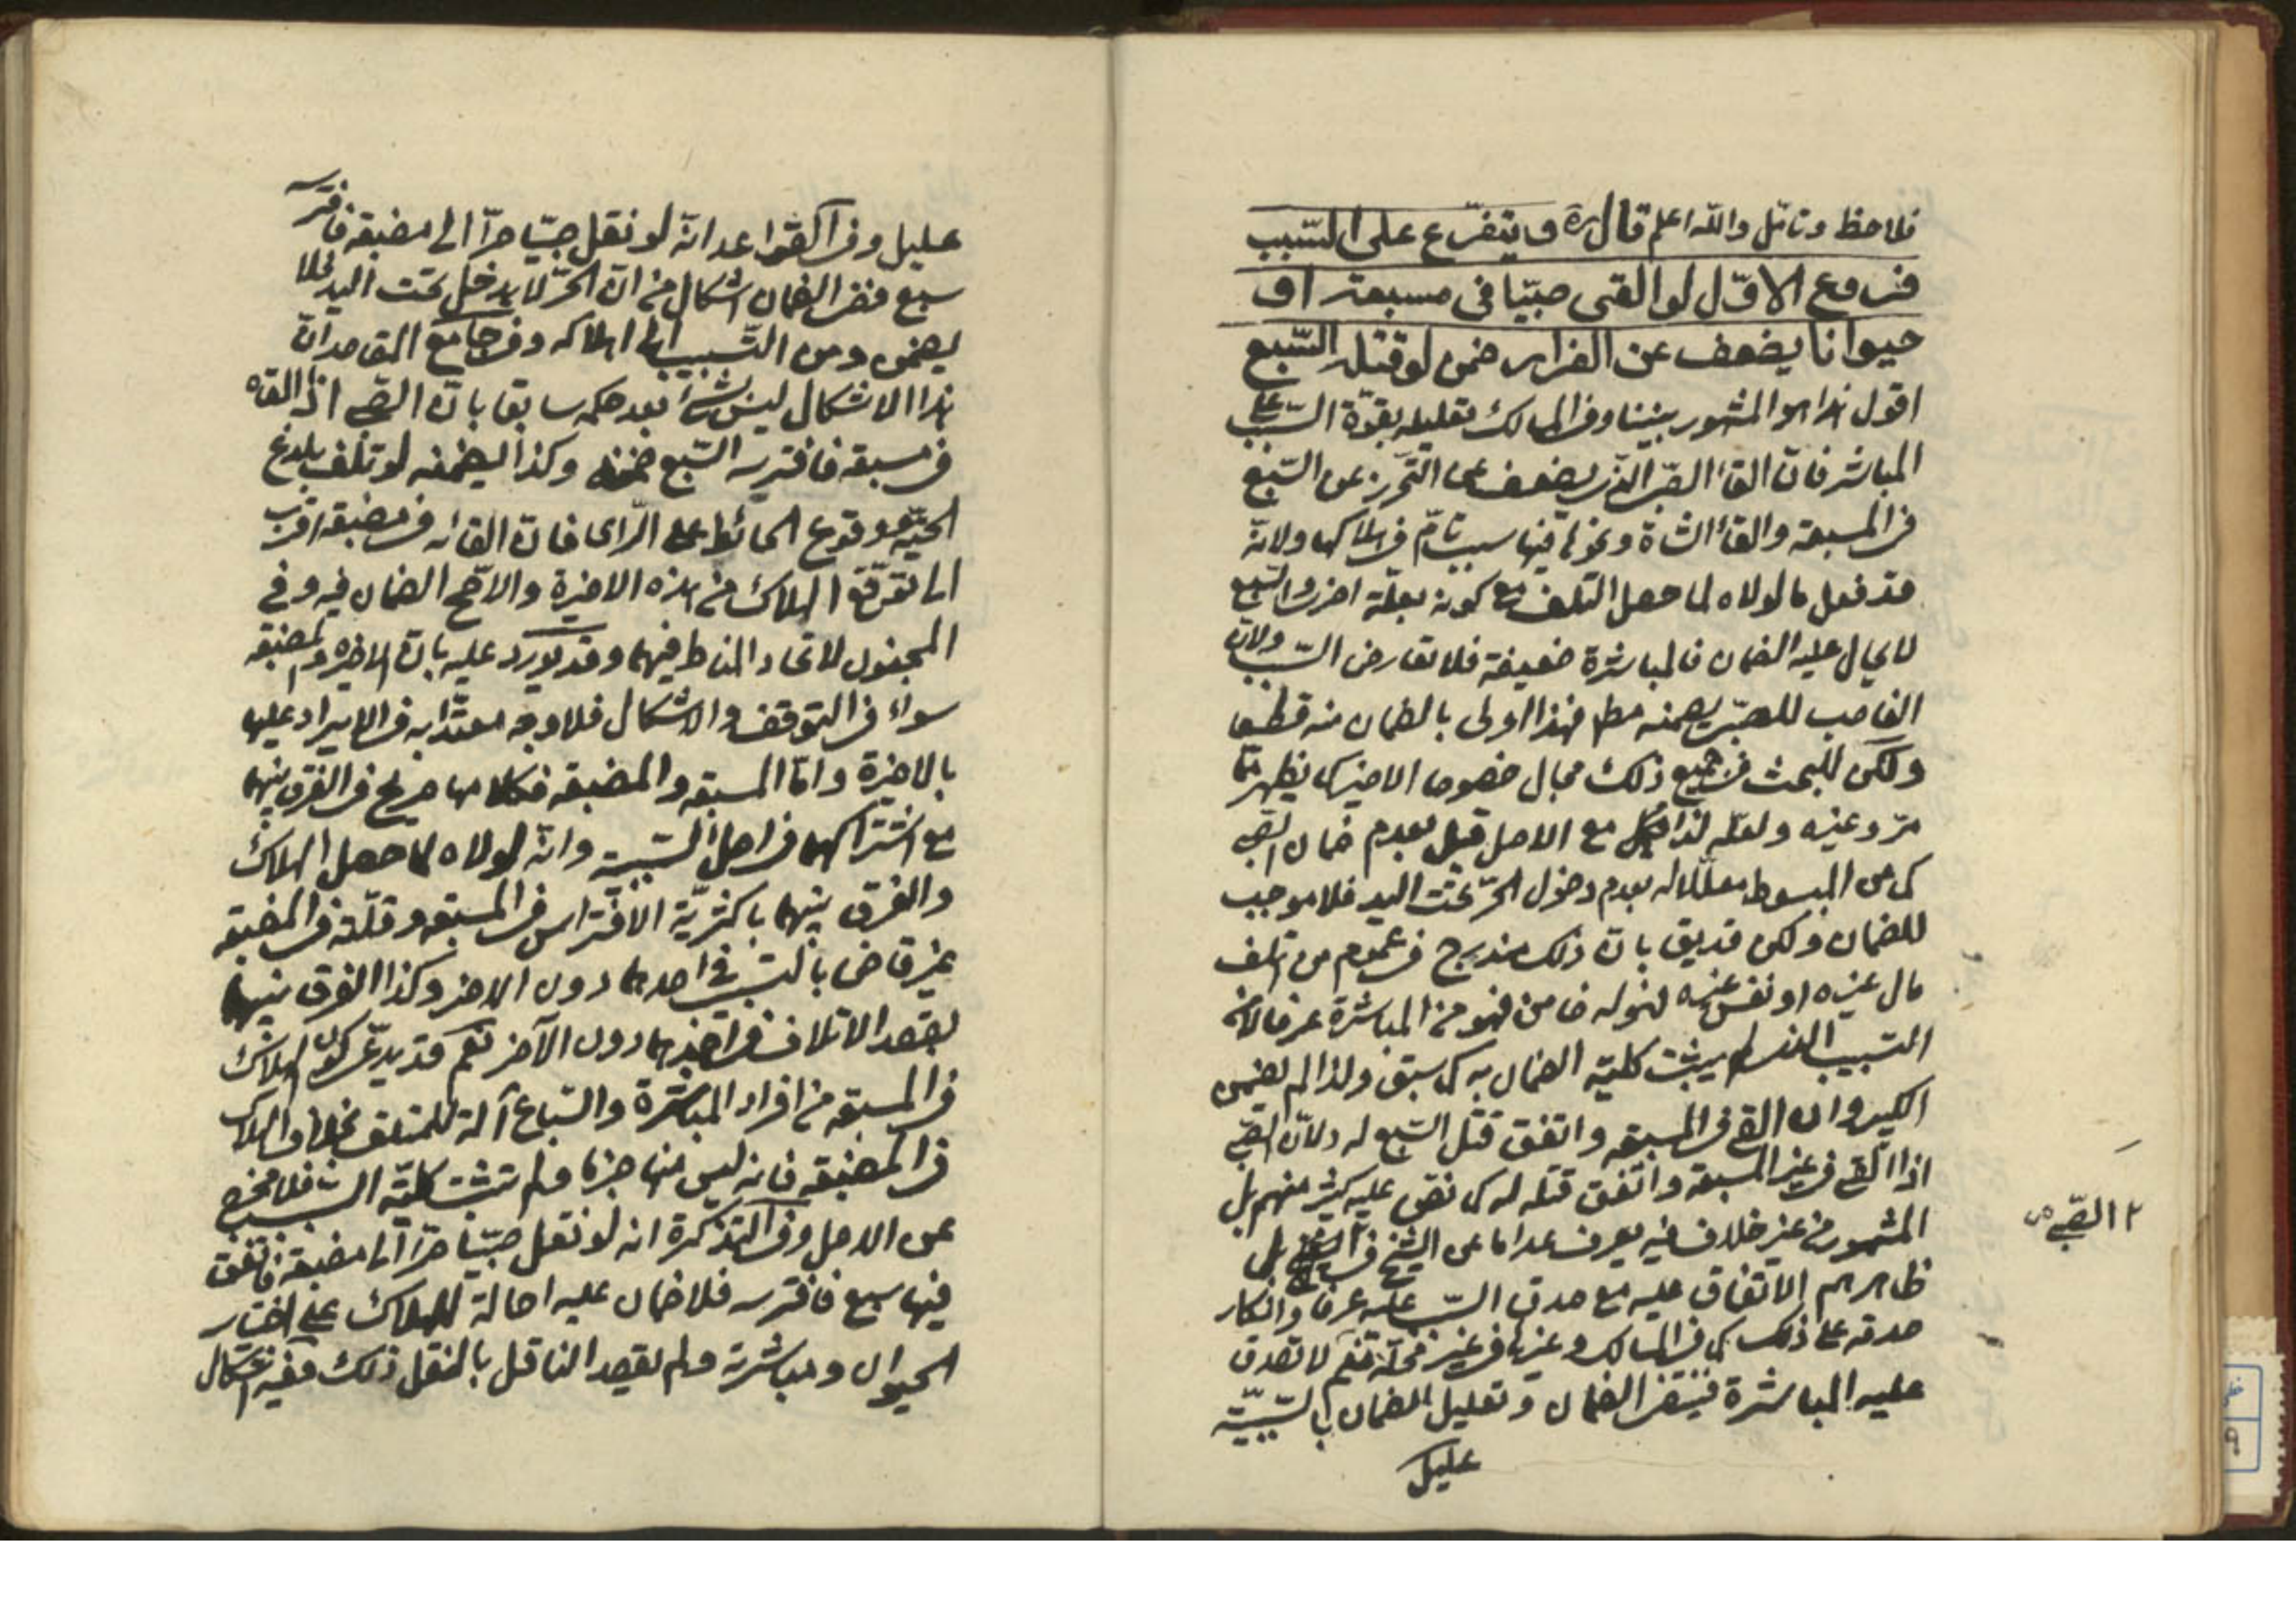 فلاحظ وتامّل واللّه اعلم قال ره ويتفرّع على التسبيب
فروع الاوّل لو القى صبيّا فى مسبعة او
حيوانا يضعف عن الفرار ضمن لو قتله السّبع
اقول هذا هو المشهور بيننا وفى المسالك تعليله بقوّة السّبب على
المباشر فانّ القاء الصبى الذى يضعف عن التحرّز عن السّبع
فى المسبعة والقاء الشاة ونحوها فيها سبب تامّ فى هلاكها ولانّه
قد فعل ما لولاه لما حصل التلف مع كونه بعلّة اخرى والسّبع
لا يحال عليه الضمان فالمباشرة ضعيفة فلا تعارض السّبب ولانّ
الغاصب للصبى يضمنه مط فهذا اولى بالضمان منه قطعا
ولكن للبحث فى جميع ذلك مجال خصوصا الاخير كما يظهر ممّا
مرّ وغيره ولعلّه لذا مع الاصل قيل بعدم ضمان الصّبى
كما عن المبسوط معلّلا له بعدم دخول الحرّ تحت اليد فلا موجب
للضمان ولكن قد يق بانّ ذلك مندرج فى عموم من اتلف
مال غيره او نفس غيره فهو له ضامن فهو من المباشرة عرفا لا من
التسبيب الذى لم يثبت كلية الضمان به كما سبق ولذا لم يضمن
الكبير وان القى فى المسبعة واتفق قتل السّبع له ولا الصّبى
اذا القى فى غير المسبعة واتفق قتله له كما نصّ عليه كثير منهم بل
المشهور من غير خلاف فيه يعرف عدا ما عن الشيخ فى بل
ظاهرهم الاتفاق عليه مع صدق السّبب عليه عرفا وانكار
صدقه على ذلك كما فى المسالك وغيرها فى غير محلّه نعم لا تصدق
عليه المباشرة فينتفى الضمان وتعليل الضمان بالسّببيّة
عليل
الصّبى ص
عليل وفى القواعد انّه لو نقل صبيّا حرّا الى مضبعة فافترسه
سبع ففى الضمان اشكال من انّ الحرّ لا يدخل تحت اليد فلا
يضمن ومن التّسبيب الى اهلاكه وفى جامع المقاصد انّ
هذا الاشكال ليس بشئ بعد حكمه سابقا بانّ الصّبى اذا القاه
فى مسبعة فافترسه السّبع ضمنه وكذا يضمنه لو تلف بلدغ
الحيّة ووقوع الحائط على الرّاى فانّ القائه فى مضبعة اقرب
الى توقّع الهلاك من هذه الاخيرة والاصّح الضمان فيه وفى
المجنون لاتحاد المناط فيهما وقد يورد عليه بانّ الاخيرة والمضبعة
سواء فى التوقف والاشكال فلا وجه معتدّا به فى الايراد عليها
بالاخيرة وامّا المسبعة والمضبعة فكلامها صريح فى الفرق بينهما
مع اشتراكهما فى اصل السّببية وانّه لولاه لما حصل الهلاك
والفرق بينهما باكثريّة الافتراس فى المسبعة وقلّته فى المضبعة
غير قاض بالتسبيب فى احدهما دون الاخر وكذا الفرق بينهما
بقصد الاتلاف فى احدهما دون الآخر نعم قد يدّعى كون الهلاك
فى المسبعة من افراد المباشرة والسّباع آلة للمتلف بخلاف الهلاك
فى المضبعة فانه ليس منها جزما ولم تثبت كلّية السّبب فلا مخرج
عن الاصل وفى التذكرة انه لو نقل صبيّا حرّا الى مضبعة فاتّفق
فيها سبع فافترسه فلا ضمان عليه احالة للهلاك على اختيار
الحيوان ومباشرته ولم يقصد الناقل بالنقل ذلك ففيه اشكال